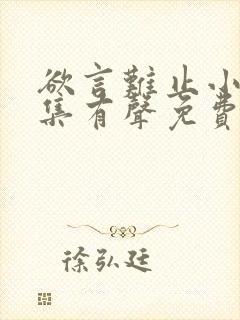 欲言難止小
集有聲免費
徐弘廷